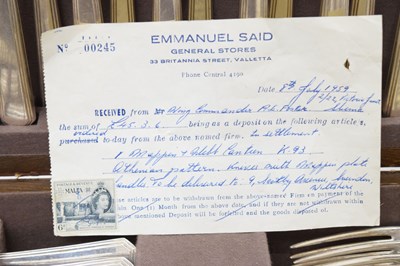 EMMANUEL SAID
GENERAL STORES
33 BRITANNIA STREET, VALLETTA
Nº 00245
Phone Central 4190
Date 8th July 1959
RECEIVED from Wing Commander
the sum of £45.3.6 being as a deposit on the following article/s
ordered
purchased to-day from the above named firm. In settlement
1 Mappin & Webb Canteen K.93
Athenian pattern. Knives with Mappin plate
handles. To be delivered to 9, Avenue, Swindon,
Wiltshire
articles are to be withdrawn from the above-named Firm on payment of
One (1) Month from the above date, and if they are not withdrawn within
mentioned Deposit will be forfeited and the goods disposed of.
POSTAGE & REVENUE
MALTA